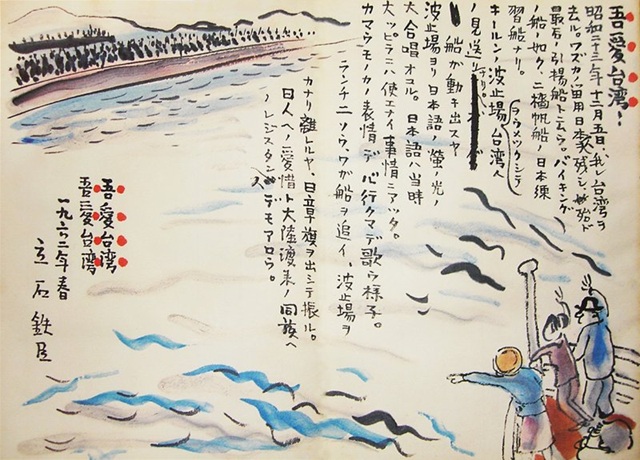 吾愛台湾!
昭和二十三年十二月五日、我レ台湾ヲ
去ル。ワズカノ留用日本家残シ、殆ンド
最后ノ引揚船。バイキング
ノ船ノ如ク、二檣帆船ノ日本練
習船ナリ。
キールンノ波止場、台湾人
ノ見送リ
船が動キ出スヤ
波止場ヨリ日本語ノ螢ノ光ノ
大合唱オコル。日本語ハ当時
大ッピラニハ使エナイ事情ニアッタ。
カマウモノカノ表情デ行クマデ歌ウ様子。
ランチ二ソウ、ワガ船ヲ追イ、波止場ヲ
カナリ離レルヤ、日章旗ヲ出シテ振ル。
日人ヘノ愛惜ト大陸渡来ノ同族ヘ
ノレジスタンスデモアロウ。
吾愛台湾
吾愛台湾
一九六二年春
立石鉄臣